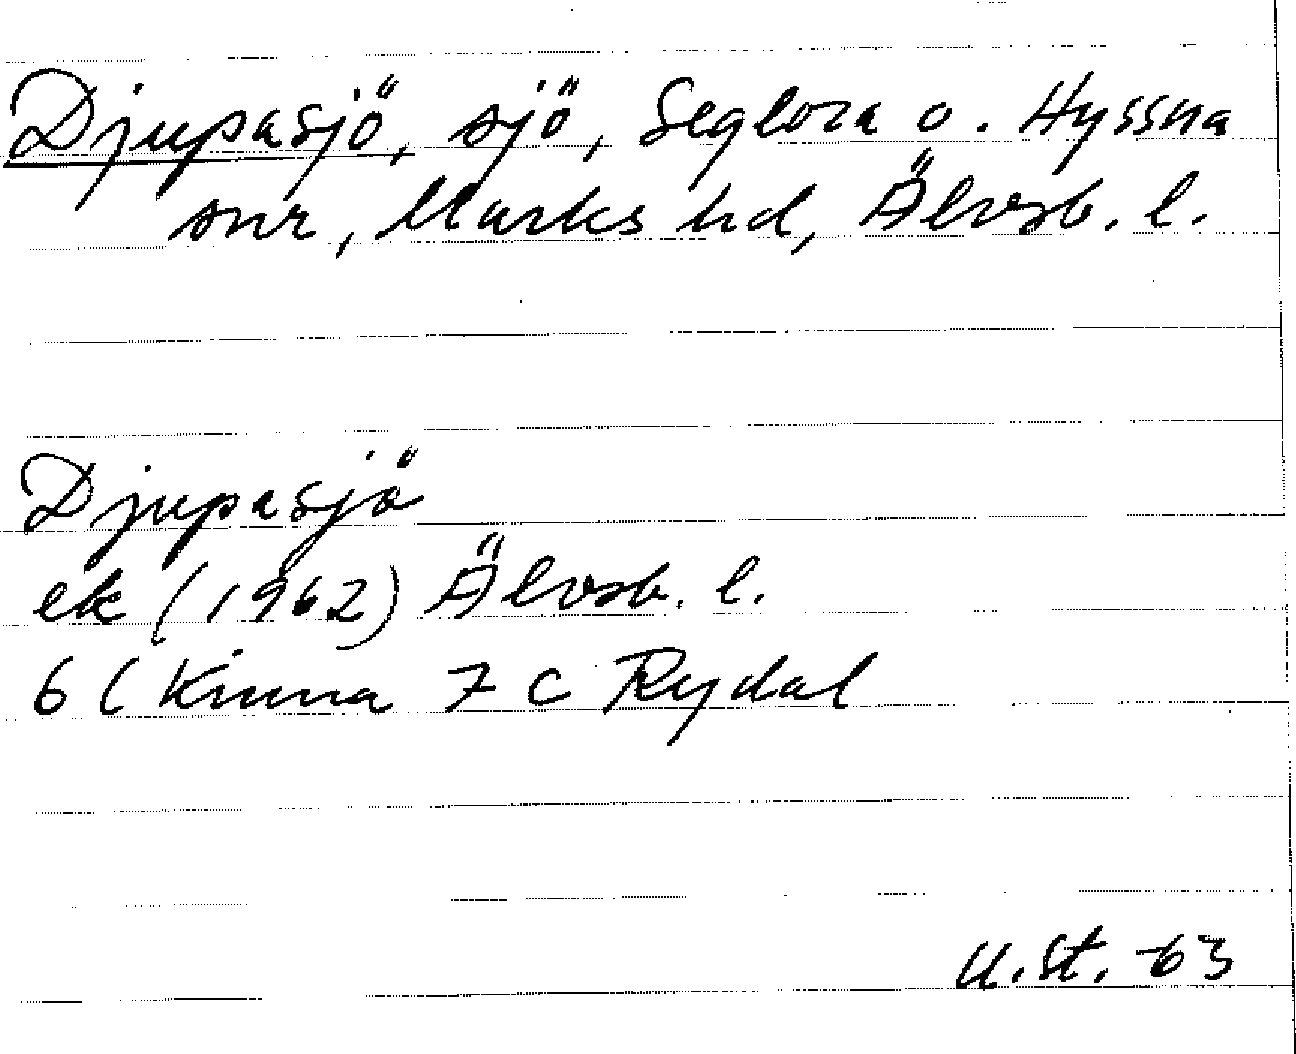 Djupasjö, sjö, Seglora o. Hyssna
snr, Marks hd, Älvsb. l.
Djupasjö
ek (1962) Älvsb. l.
6 C Kinna 7 C Rydal
U.St. -63